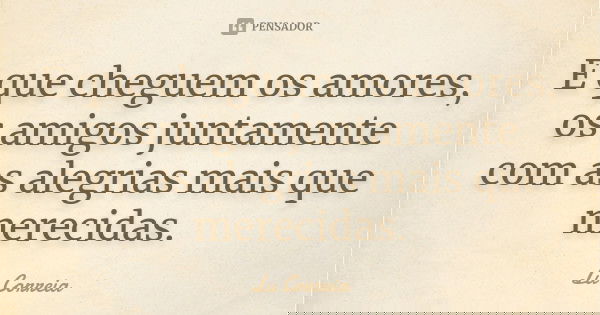 PENSADOR
E que cheguem os amores,
os amigos juntamente
com as alegrias mais que
merecidas.
Li Correia